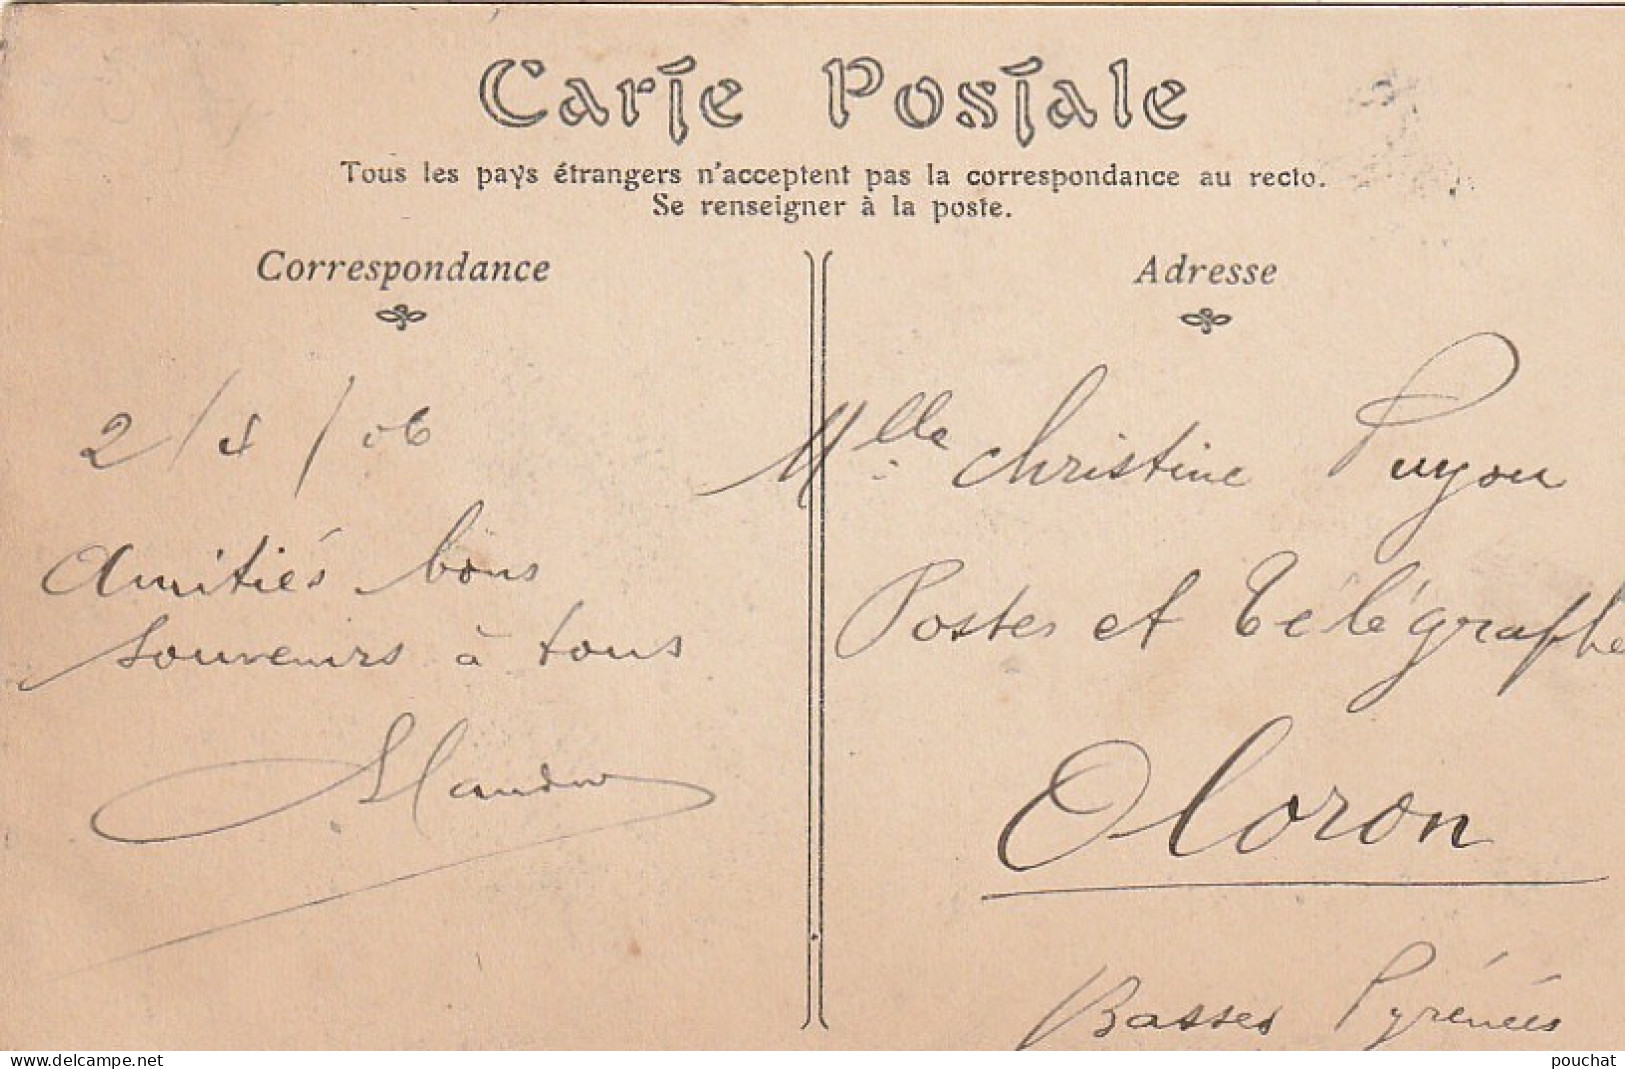 Carte Postale
Tous les pays étrangers n'acceptent pas la correspondance au recto.
Se renseigner à la poste.
Correspondance
2/4/06
Amitiés bons
souvenirs à tous
Adresse
Mlle Christine Puyou
Postes et Télégraphe
Oloron
Basses Pyrénées
www.delcampe.net
pouchat